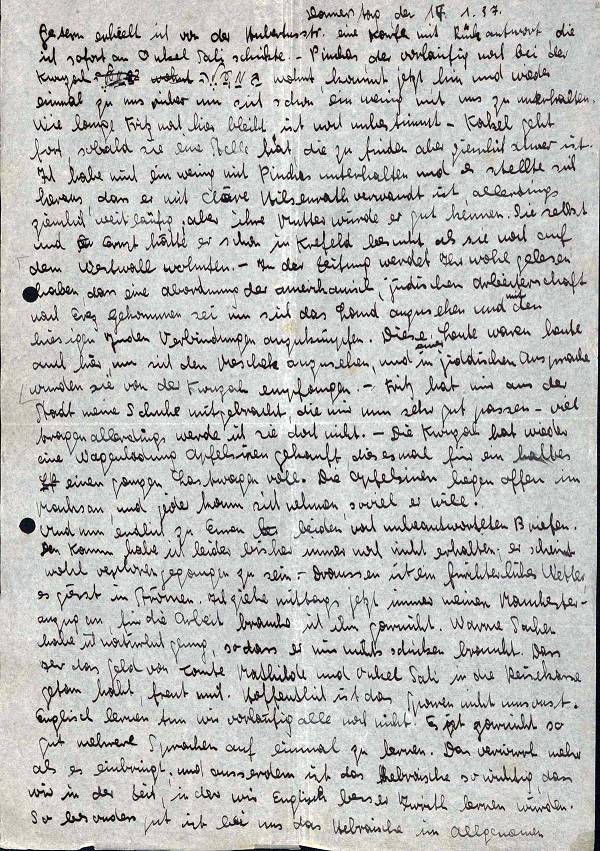 Donnerstag den 14. 1. 37.
Gestern erhielt ich von der Hubertusstr. eine Karte mit Rückantwort die
ich sofort an Onkel Sali schickte. - Pinchas der vorläufig noch bei der
Kwuzah wohnt, kommt jetzt hin und wieder
einmal zu uns rüber um sich schon ein wenig mit uns zu unterhalten.
Wie lange Fritz noch hier bleibt, ist noch unbestimmt - geht
fort, sobald sie eine Stelle hat die zu finden aber ziemlich schwer ist.
Ich habe mich ein wenig mit Pinchas unterhalten und es stellte sich
heraus, dass er mit Hilsenrath verwandt ist allerdings
ziemlich weitläufig, aber ihre Mutter würde er gut kennen. Sie selbst
und hätte er schon in Krefeld besucht, als sie noch auf
dem Westwall wohnten. - In der Zeitung werdet Ihr wohl gelesen
haben dass eine Abordnung der amerikanisch, jüdischen Arbeiterschaft
nach Erez gekommen sei um sich das Land anzusehen und mit den
hiesigen Juden Verbindungen anzuknüpfen. Diese Leute waren heute
auch hier, um sich den Meschek anzusehen, und in einer jiddischen Ansprache
wurden sie von der Kwuzah empfangen. - Fritz hat mir aus der
Stadt meine Schuhe mitgebracht, die mir nun sehr gut passen - viel
tragen allerdings werde ich sie dort nicht. - Die Kwuzah hat wieder
eine Wagenladung Apfelsinen gekauft, diesmal für ein halbes
einen ganzen Lastwagen voll. Die Apfelsinen liegen offen im
und jeder kann sich nehmen soviel er will.
Und nun endlich zu Euren beiden, noch unbeantworteten Briefen.
Den Kamm habe ich leider bisher immer noch nicht erhalten; er scheint
wohl verlorengegangen zu sein. - Draussen ist ein fürchterliches Wetter,
es giesst in Strömen. Ich ziehe mittags jetzt immer meinen Manchester-
anzug an, für die Arbeit brauche ich ihn garnicht. Warme Sachen
habe ich natürlich genug, sodass er mir nichts schicken braucht. Dass
Ihr das Geld von Tante Mathilde und Onkel Sali in die Reisekasse
getan habt, freut mich. Hoffentlich ist das Sparen nicht umsonst.
Englisch lernen tun wir vorläufig alle noch nicht. Es ist garnicht so
gut mehrere Sprachen auf einmal zu lernen. Das verwirrt mehr
als es einbringt, und ausserdem ist das Hebräische so wichtig, dass
wir in der Zeit, in der wir Englisch besser Iwrith lernen würden.
So besonders gut ist bei uns das Hebräische im Allgemeinen